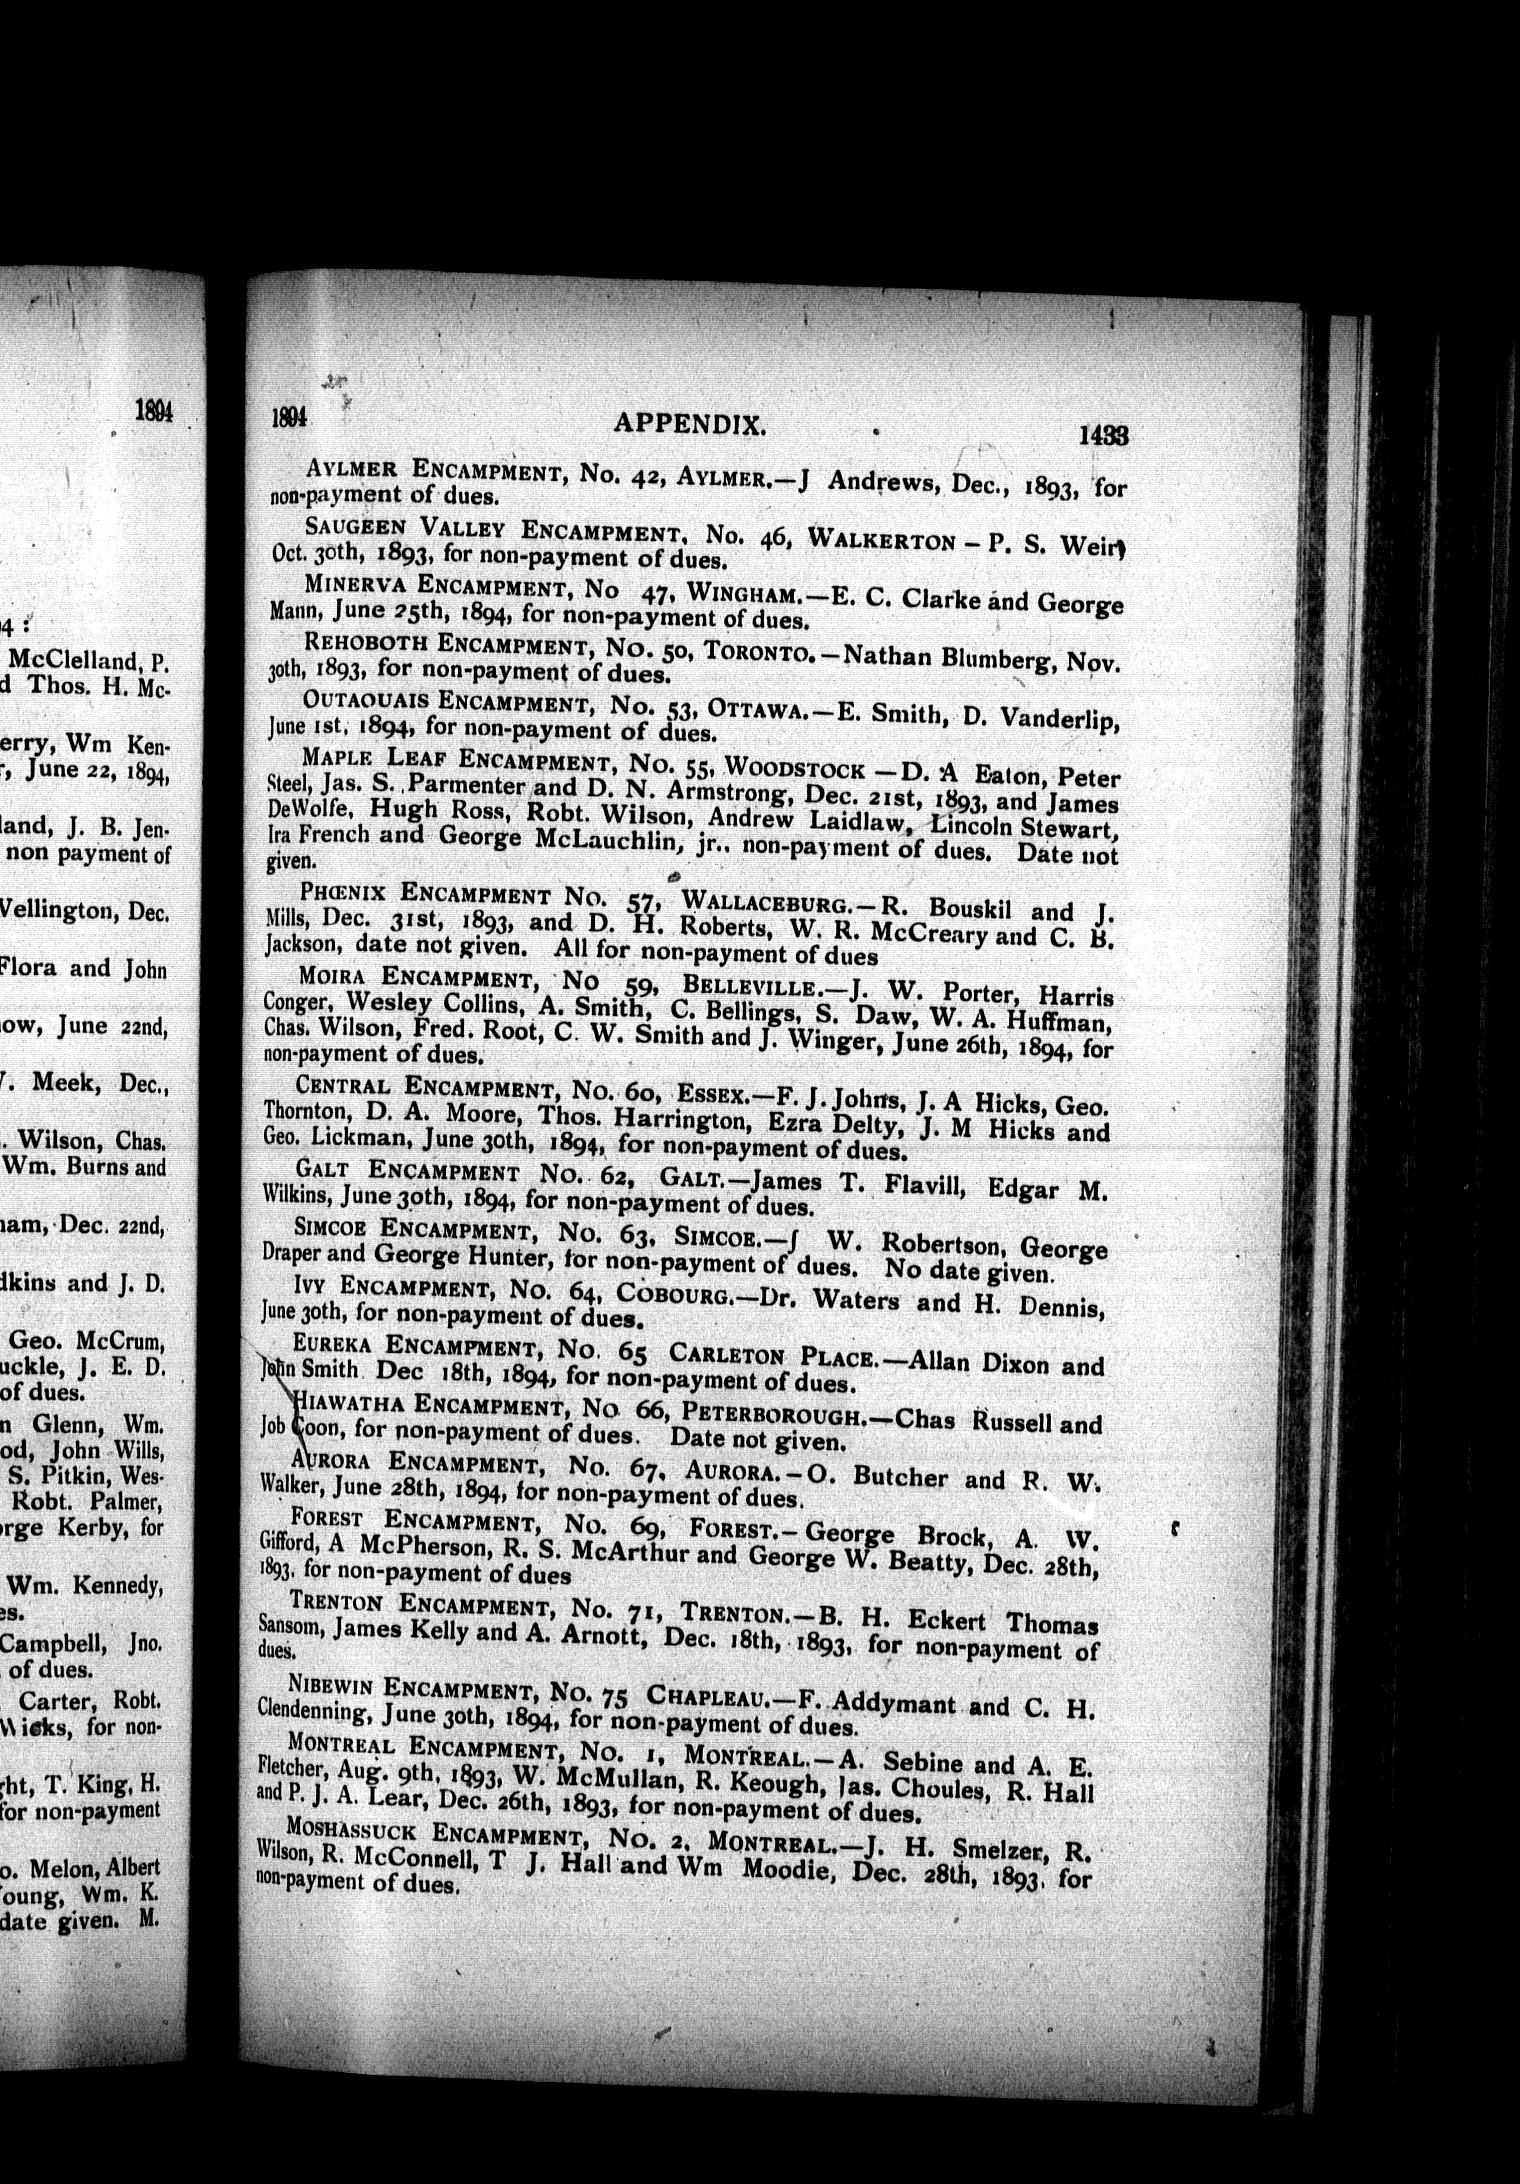 1894
4 :
McClelland, P.
d Thos. H. Mc-
erry, Wm Ken-
, June 22, 1894,
land, J. B. Jen-
non payment of
Wellington, Dec.
Flora and John
ow, June 22nd,
. Meek, Dec.,
. Wilson, Chas.
Wm. Burns and
ham, Dec. 22nd,
dkins and J. D.
Geo. McCrum,
uckle, J. E. D.
of dues.
n Glenn, Wm.
od, John Wills,
S. Pitkin, Wes-
Robt. Palmer,
orge Kerby, for
Wm. Kennedy,
es.
Campbell, Jno.
of dues.
Carter, Robt.
Wicks, for non-
ght, T. King, H.
for non-payment
o. Melon, Albert
oung, Wm. K.
date given. M.
1894 APPENDIX. 1433
AYLMER ENCAMPMENT, NO. 42, AYLMER.—J Andrews, Dec., 1893, for
non-payment of dues.
SAUGEEN VALLEY ENCAMPMENT, NO. 46, WALKERTON – P. S. Weir,
Oct. 30th, 1893, for non-payment of dues.
MINERVA ENCAMPMENT, NO 47, WINGHAM.—E. C. Clarke and George
Mann, June 25th, 1894, for non-payment of dues.
REHOBOTH ENCAMPMENT, NO. 50, TORONTO.—Nathan Blumberg, Nov.
30th, 1893, for non-payment of dues.
OUTAOUAIS ENCAMPMENT, NO. 53, OTTAWA.—E. Smith, D. Vanderlip,
June 1st, 1894, for non-payment of dues.
MAPLE LEAF ENCAMPMENT, NO. 55, WOODSTOCK —D. A Eaton, Peter
Steel, Jas. S. Parmenter and D. N. Armstrong, Dec. 21st, 1893, and James
DeWolfe, Hugh Ross, Robt. Wilson, Andrew Laidlaw, Lincoln Stewart,
Ira French and George McLauchlin, jr., non-payment of dues. Date not
given.
PHŒNIX ENCAMPMENT NO. 57, WALLACEBURG.—R. Bouskil and J.
Mills, Dec. 31st, 1893, and D. H. Roberts, W. R. McCreary and C. B.
Jackson, date not given. All for non-payment of dues
MOIRA ENCAMPMENT, NO 59, BELLEVILLE.—J. W. Porter, Harris
Conger, Wesley Collins, A. Smith, C. Bellings, S. Daw, W. A. Huffman,
Chas. Wilson, Fred. Root, C. W. Smith and J. Winger, June 26th, 1894, for
non-payment of dues.
CENTRAL ENCAMPMENT, NO. 60, ESSEX.—F. J. Johns, J. A Hicks, Geo.
Thornton, D. A. Moore, Thos. Harrington, Ezra Delty, J. M Hicks and
Geo. Lickman, June 30th, 1894, for non-payment of dues.
GALT ENCAMPMENT NO. 62, GALT.—James T. Flavill, Edgar M.
Wilkins, June 30th, 1894, for non-payment of dues.
SIMCOE ENCAMPMENT, NO. 63, SIMCOE.—J W. Robertson, George
Draper and George Hunter, for non-payment of dues. No date given.
IVY ENCAMPMENT, NO. 64, COBOURG.—Dr. Waters and H. Dennis,
June 30th, for non-payment of dues.
EUREKA ENCAMPMENT, NO. 65 CARLETON PLACE.—Allan Dixon and
John Smith Dec 18th, 1894, for non-payment of dues.
HIAWATHA ENCAMPMENT, NO 66, PETERBOROUGH.—Chas Russell and
Job Coon, for non-payment of dues. Date not given.
AURORA ENCAMPMENT, NO. 67, AURORA.—O. Butcher and R. W.
Walker, June 28th, 1894, for non-payment of dues.
FOREST ENCAMPMENT, NO. 69, FOREST.—George Brock, A. W.
Gifford, A McPherson, R. S. McArthur and George W. Beatty, Dec. 28th,
1893, for non-payment of dues
TRENTON ENCAMPMENT, NO. 71, TRENTON.—B. H. Eckert Thomas
Sansom, James Kelly and A. Arnott, Dec. 18th, 1893, for non-payment of
dues.
NIBEWIN ENCAMPMENT, NO. 75 CHAPLEAU.—F. Addymant and C. H.
Clendenning, June 30th, 1894, for non-payment of dues.
MONTREAL ENCAMPMENT, NO. 1, MONTREAL.—A. Sebine and A. E.
Fletcher, Aug. 9th, 1893, W. McMullan, R. Keough, Jas. Choules, R. Hall
and P. J. A. Lear, Dec. 26th, 1893, for non-payment of dues.
MOSHASSUCK ENCAMPMENT, NO. 2, MONTREAL.—J. H. Smelzer, R.
Wilson, R. McConnell, T J. Hall and Wm Moodie, Dec. 28th, 1893, for
non-payment of dues.